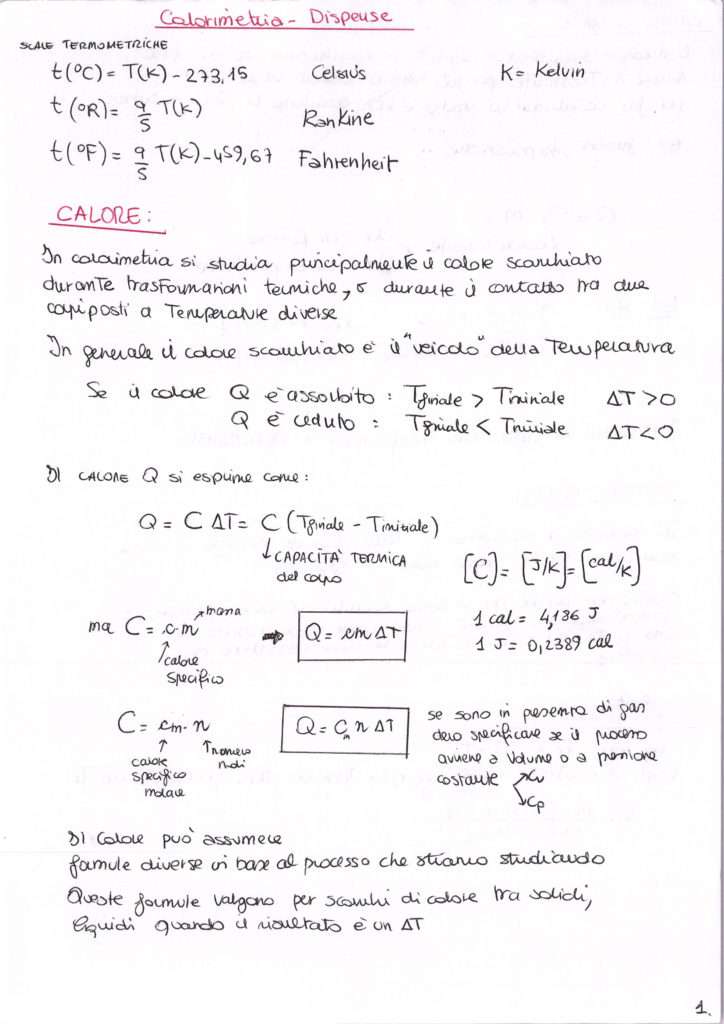 Calorimetria - Dispense
SCALE TERMOMETRICHE
t(°C) = T(K) - 273,15 Celsius K = Kelvin
t(°R) = 9/5 T(K) Rankine
t(°F) = 9/5 T(K) - 459,67 Fahrenheit
CALORE:
In calorimetria si studia principalmente il calore scambiato
durante trasformazioni termiche, o durante il contatto tra due
corpi posti a Temperature diverse
In generale il calore scambiato è il "veicolo" della Temperatura
Se il calore Q è assorbito : Tfinale > Tiniziale ΔT > 0
Q è ceduto : Tfinale < Tiniziale ΔT < 0
Il CALORE Q si esprime come:
Q = C ΔT = C (Tfinale - Tiniziale)
↓ CAPACITÀ TERMICA
del corpo
[C] = [J/K] = [cal/K]
ma C = c·m → massa
↑ calore
specifico
⇒ Q = cm ΔT
1 cal = 4,186 J
1 J = 0,2389 cal
C = cm · n
↑ calore
specifico
molare
↑ numero
moli
Q = Cm n ΔT
se sono in presenza di gas
devo specificare se il processo
avviene a volume o a pressione
costante → cv
→ cp
Il calore può assumere
formule diverse in base al processo che stiamo studiando
Queste formule valgono per scambi di calore tra solidi,
liquidi quando il risultato è un ΔT
1.